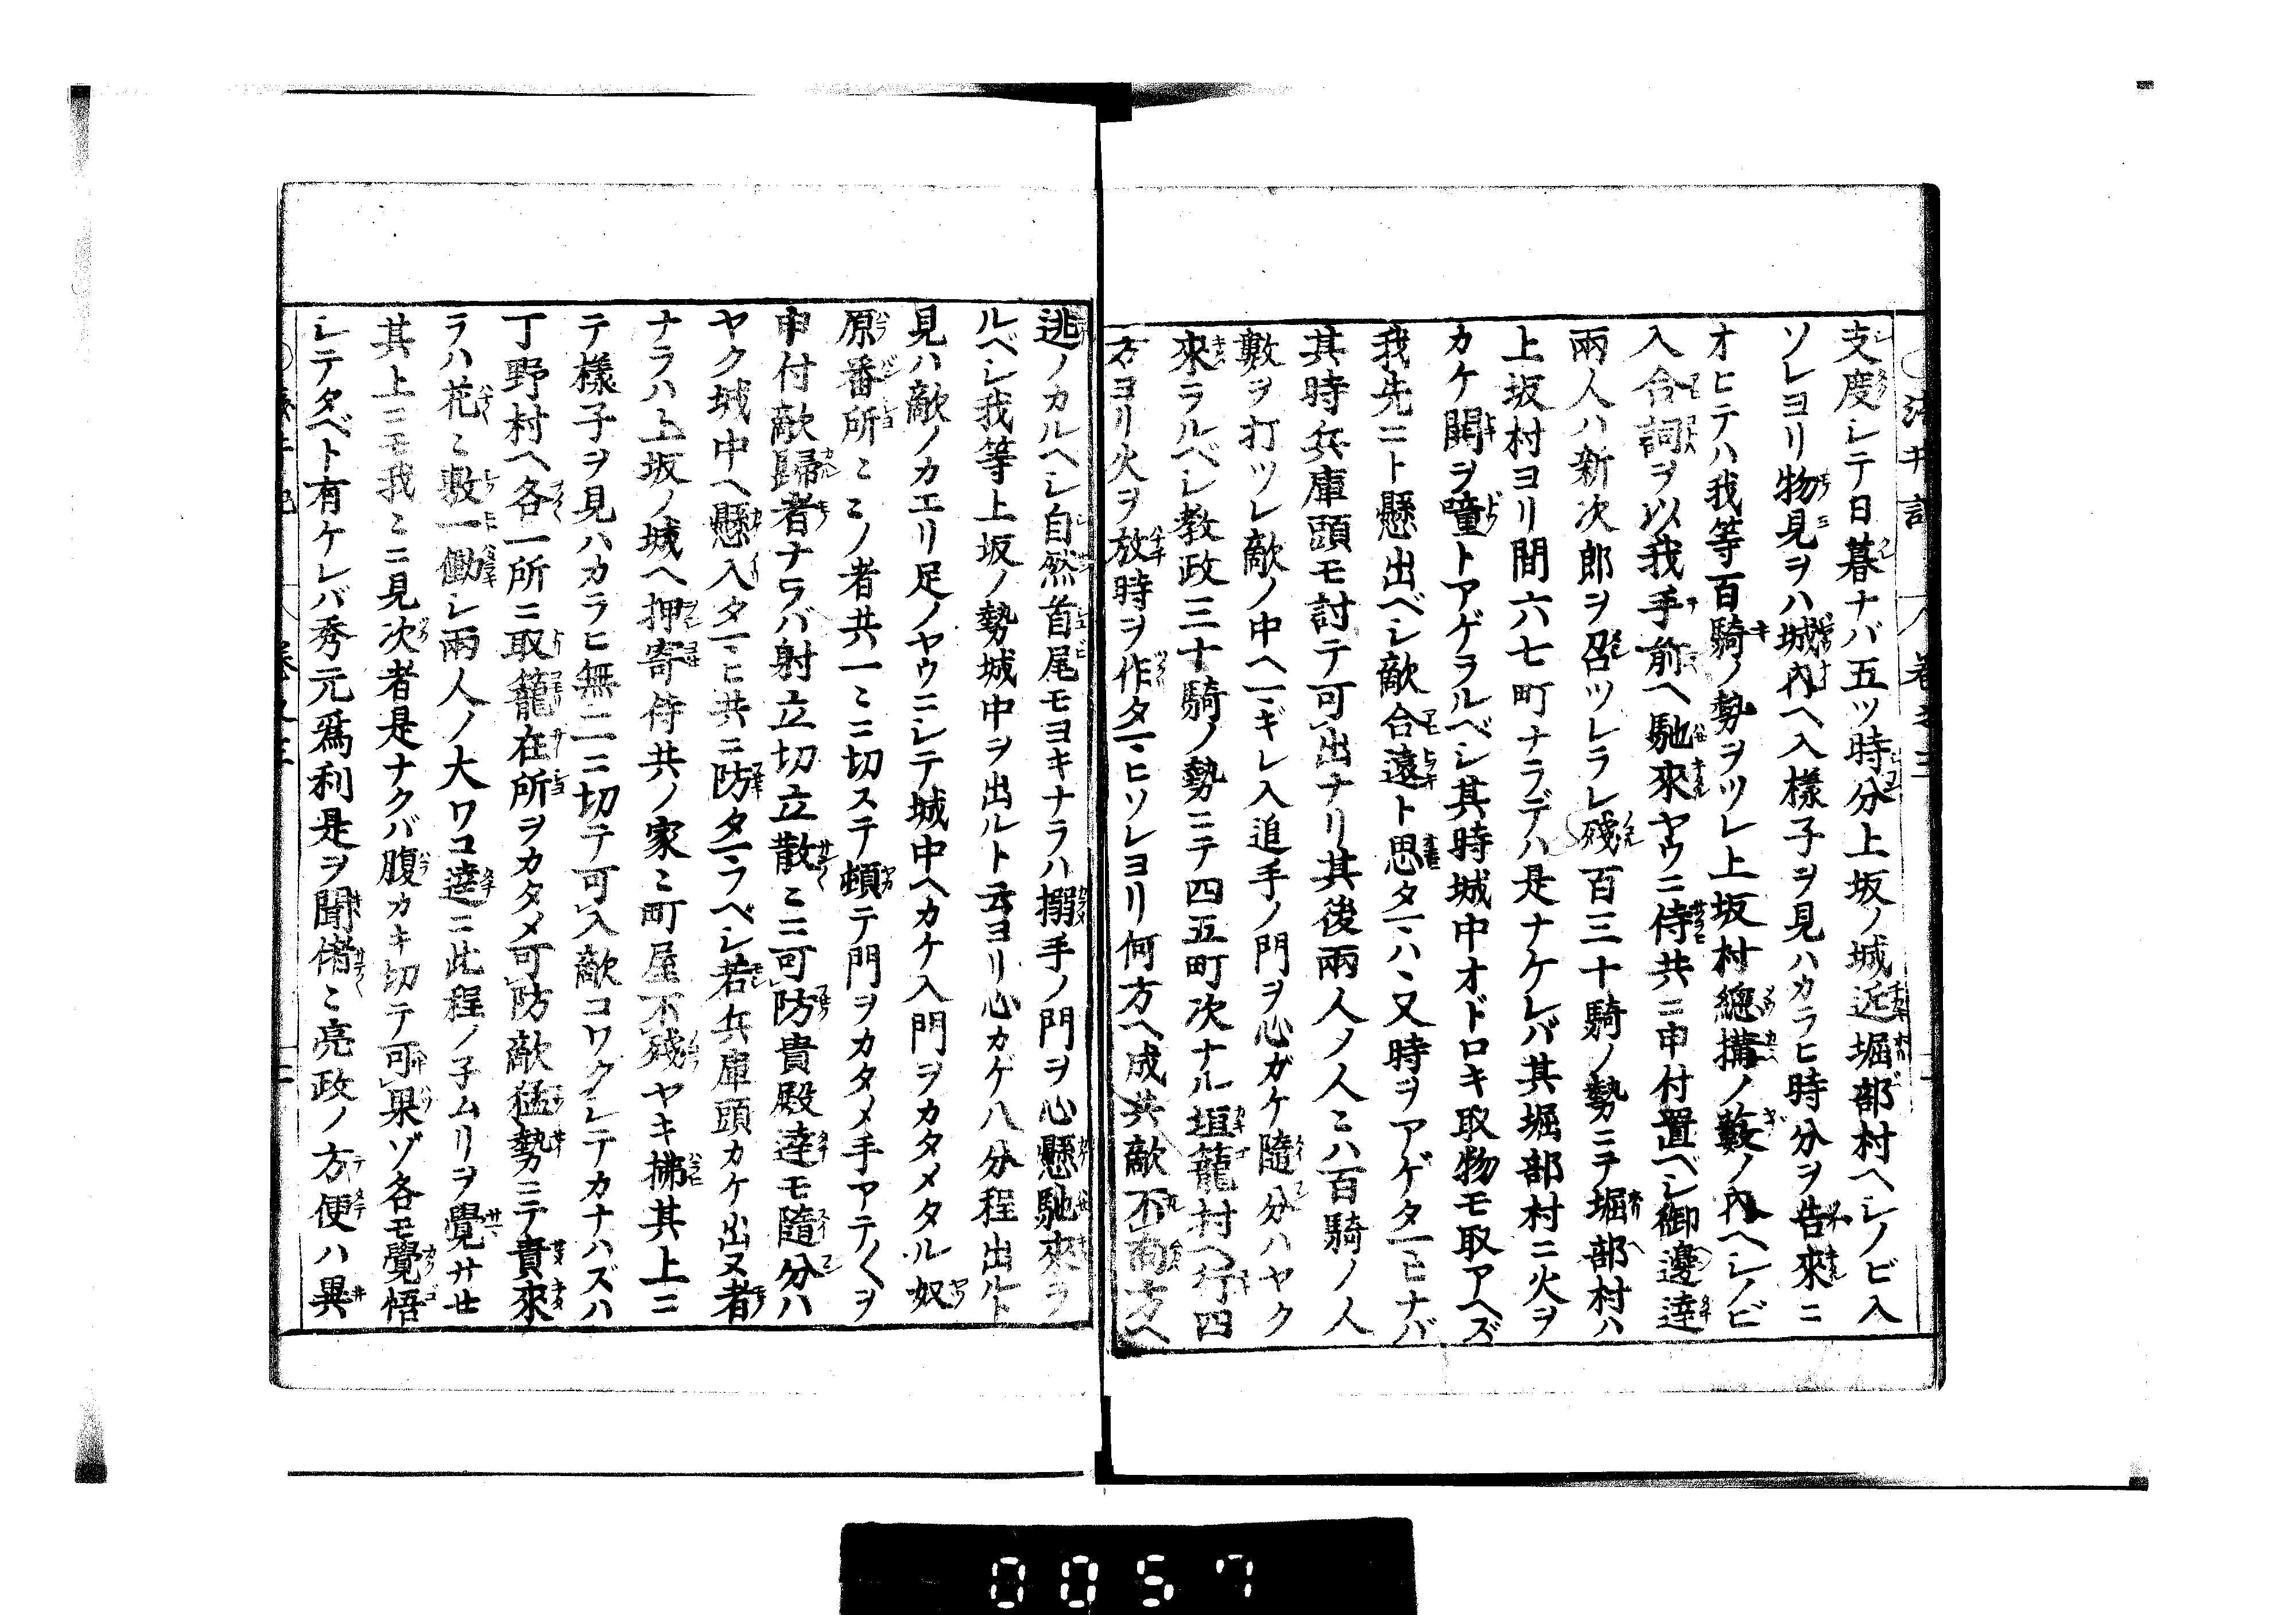 支度シテ日暮ナバ五ツ時分上坂ノ城近堀部村ヘシノビ入
ソレヨリ物見ヲハ城内ヘ入様子ヲ見ハカラヒ時分ヲ告來ニ
オヒテハ我等百騎ノ勢ヲツレ上坂村總搆ノ藪ノ内ヘシノビ
入合詞ヲ以我手前ヘ馳來ヤウニ侍共ニ申付置ベシ御邊達
兩人ハ新次郎ヲ召ツレラレ殘百三十騎ノ勢ニテ堀部村ハ
上坂村ヨリ間六七町ナラデハ是ナケレバ其堀部村ニ火ヲ
カケ鬨ヲ噇トアゲヲルベシ其時城中オドロキ取物モ取アヘズ
我先ニト懸出ベシ敵合遠ト思タマハヽ又時ヲアゲタマヒナバ
其時兵庫頭モ討テ可出ナリ其後兩人ノ人ミハ百騎ノ人
數ヲ打ツレ敵ノ中ヘマギレ入追手ノ門ヲ心ガケ隨分ハヤク
來ラルベシ教政三十騎ノ勢ニテ四五町次ナル垣籠村ヘ行四
方ヨリ火ヲ放時ヲ作タマヒソレヨリ何方ヘ成共敵不向方ヘ
逃ノカルヘシ自然首尾モヨキナラハ搦手ノ門ヲ心懸馳來ラ
ルベシ我等上坂ノ勢城中ヲ出ルト云ヨリ心カゲ八分程出ルト
見ハ敵ノカエリ足ノヤウニシテ城中ヘカケ入門ヲカタメタル奴
原番所ミミノ者共一ミニ切ステ頓テ門ヲカタメ手アテ〱ヲ
申付敵歸者ナラバ射立切立散ミニ可防貴殿達モ隨分ハ
ヤク城中ヘ懸入タマヒ共ニ防タマフベシ若兵庫頭カケ出又者
ナラハ上坂ノ城ヘ押寄侍共ノ家ミ町屋不殘ヤキ拂其上ニ
テ樣子ヲ見ハカラヒ無二ニ切テ可入敵コワクシテカナハズハ
丁野村ヘ各一所ニ取籠在所ヲカタメ可防敵猛勢ニテ責來
ラハ花ミ敷一働シ兩人ノ大ワコ達ニ此程ノ子ムリヲ覺サセ
其上ニモ我ミニ見次者是ナクバ腹カキ切テ可果ゾ各モ覺悟
シテタベト有ケレバ秀元爲利是ヲ聞偖ミ亮政ノ方便ハ異